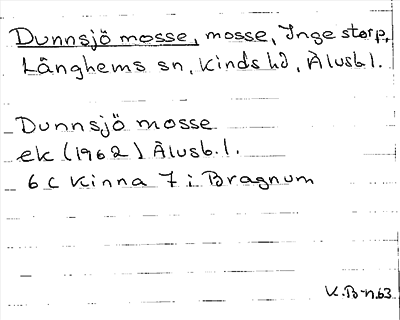 Dunnsjö mosse, mosse, Inge storp,
Långhems sn, Kinds hd, Älvsb l.
Dunnsjö mosse
ek (1962) Älvsb. l.
6 C Kinna 7 i Bragnum
K.B-n.63